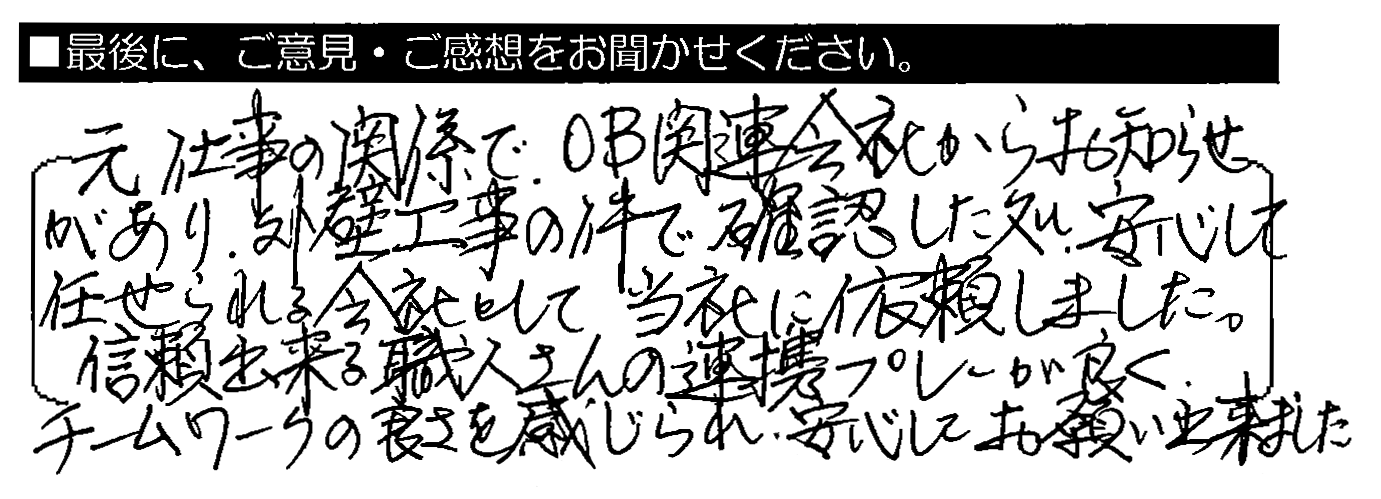 ■最後に、ご意見・ご感想をお聞かせください。
元仕事の関係で、OB関連会社からお知らせ
があり、外壁工事の件で確認した処、安心して
任せられる会社として当社に依頼しました。
信頼出来る職人さんの連携プレーが良く、
チームワークの良さを感じられ、安心してお願い出来ました